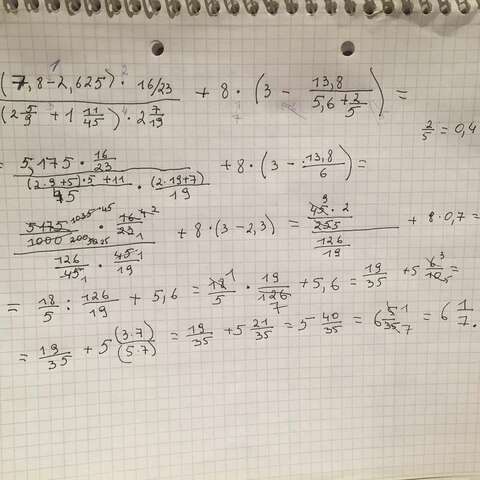 (7,8-2,625) · 16/23 / (2 5/9 + 1 11/45) · 2 7/19 + 8 · (3 - 13,8 / (5,6 + 2/5)) =
2/5 = 0,4
= 5,175 · 16/23 / ((2·9+5)·5+11)/45 · (2·19+7)/19 + 8 · (3 - 13,8/6) =
5175/1000 · 16/23 / 126/45 · 45/19 + 8 · (3 - 2,3) = 45·2/ / 126/19 + 8 · 0,7 =
= 18/5 : 126/19 + 5,6 = 18/5 · 19/126 + 5,6 = 19/35 + 5 6/10 =
= 19/35 + 5 (3·7)/(5·7) = 19/35 + 5 21/35 = 5 40/35 = 6 5/35 = 6 1/7.